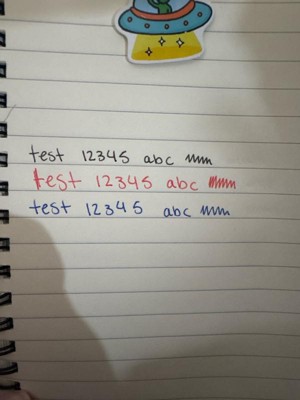 test 12345 abc
test 12345 abc
test 12345 abc